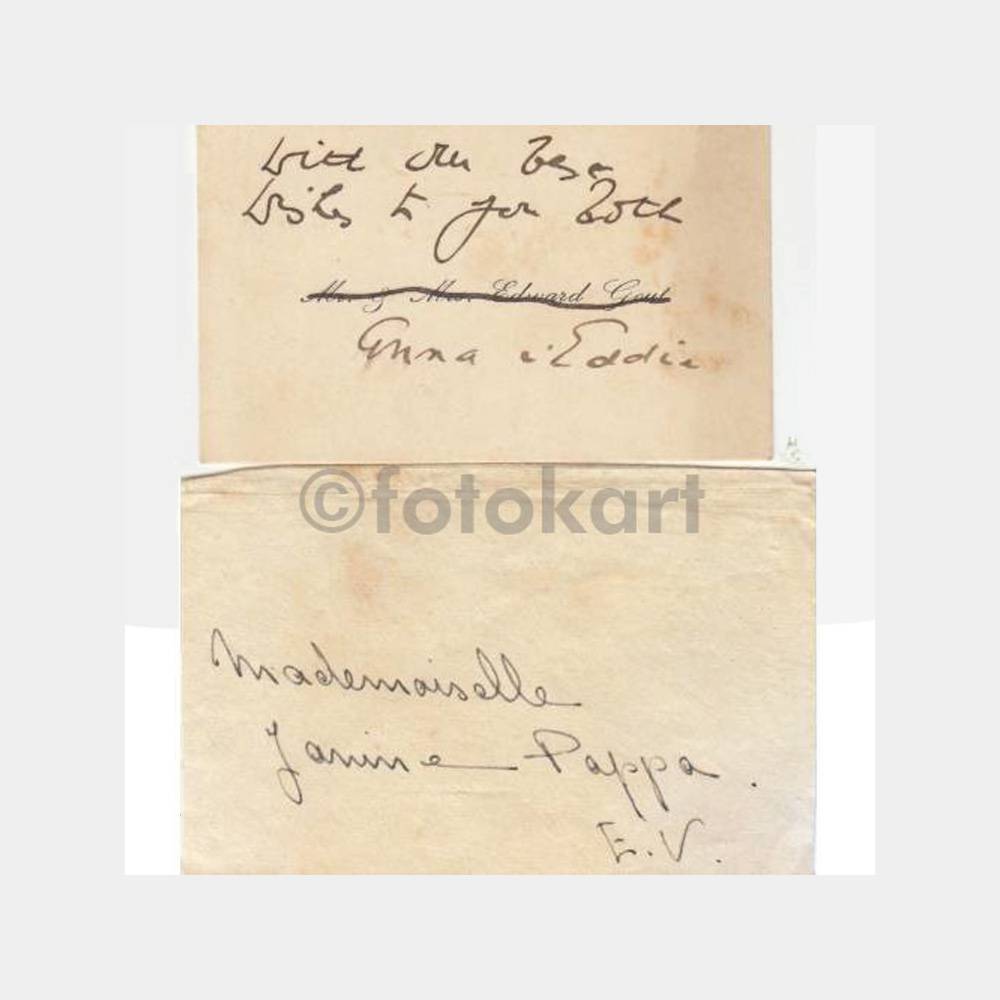 With our best
wishes to you both
Mr. & Mrs. Edward Gout
Anna & Eddie
©fotokart
Mademoiselle
Janine Pappa.
E.V.